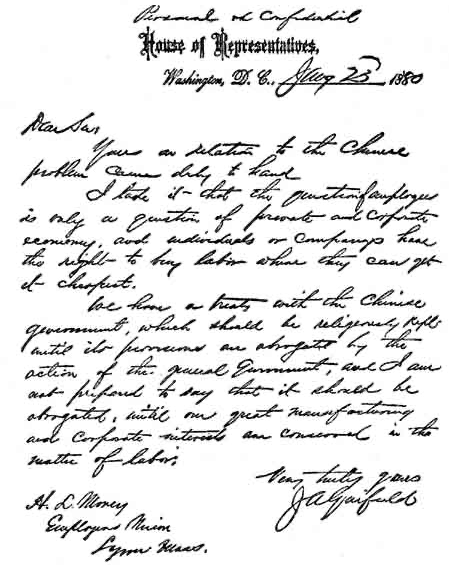 Personal & Confidential
House of Representatives,
Washington, D. C., Jany 23 1880
Dear Sir
Yours in relation to the Chinese
problem came duly to hand
I take it that the question of employes
is only a question of private and corporate
economy, and individuals or companys have
the right to buy labor where they can get
it cheapest.
We have a treaty with the Chinese
government, which should be religiously kept
until its provisions are abrogated by the
action of the general Government, and I am
not prepared to say that it should be
abrogated, until our great manufacturing
and corporate interests are conserved in the
matter of labor.
Very truly yours
J A Garfield
H. L. Morey
Employers Union
Lynn Mass.